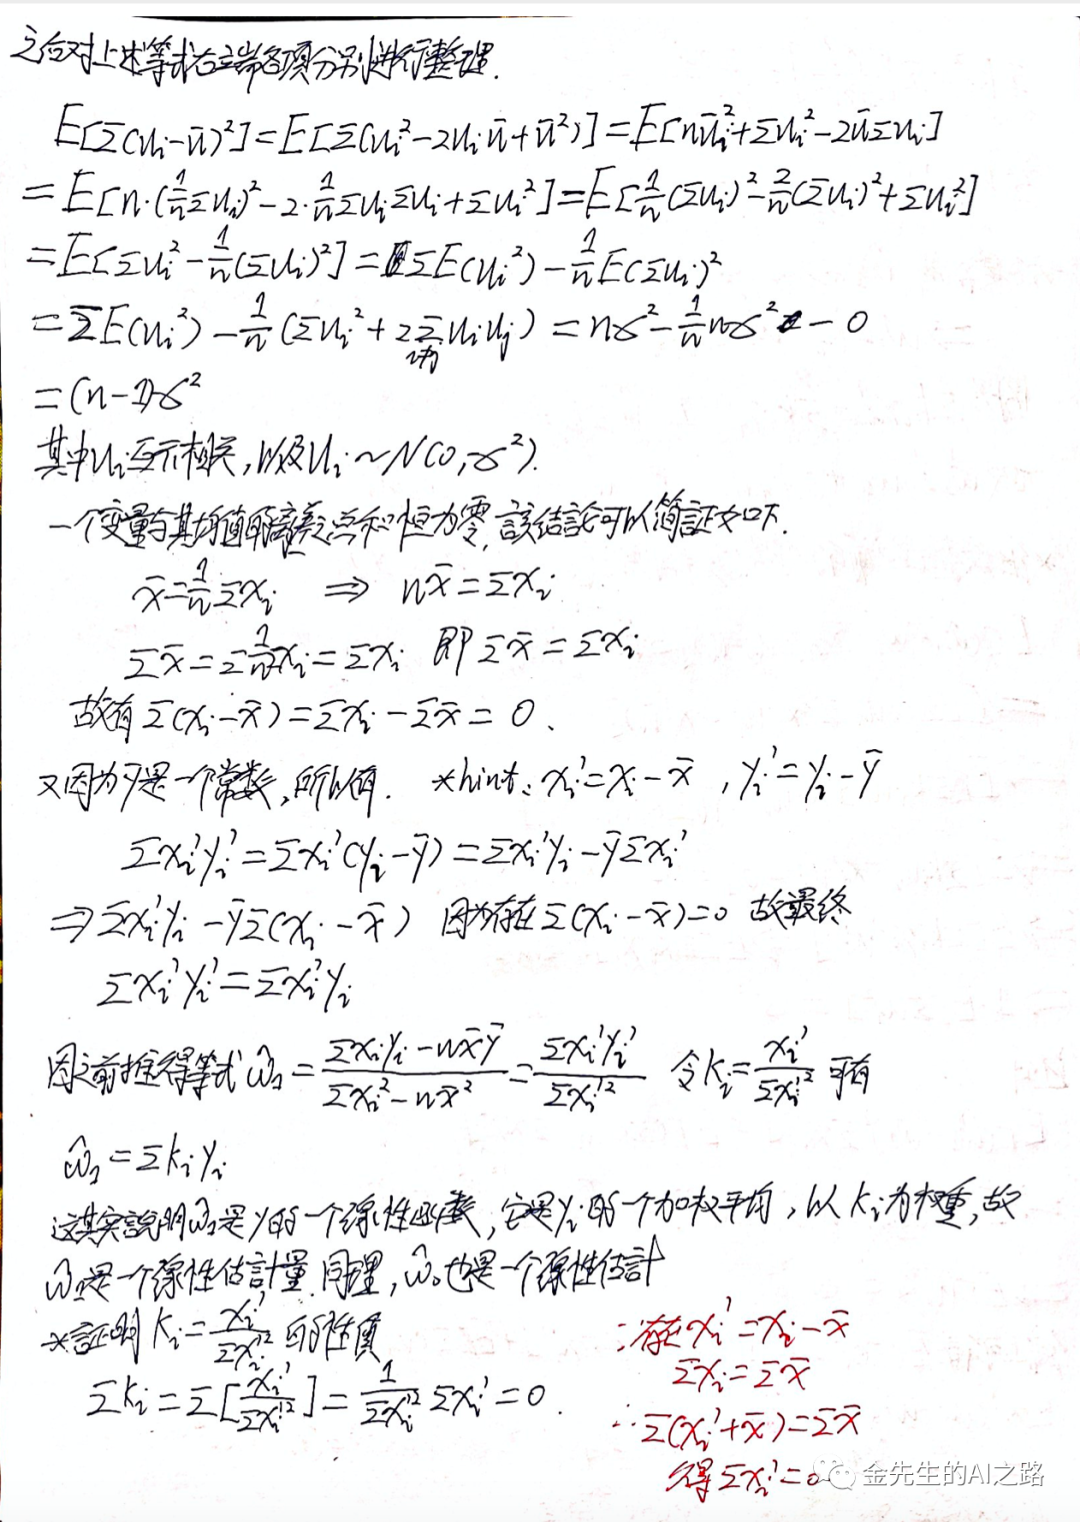 之后对上述等式右立端各项分别进行整理.
E[Σ(u_i-ū)²]=E[Σ(u_i²-2u_iū+ū²)]=E[nū_i²+Σu_i²-2ūΣu_i]
=E[n·(1/nΣu_i)²-2·1/nΣu_iΣu_i+Σu_i²]=E[1/n(Σu_i)²-2/n(Σu_i)²+Σu_i²]
=E[Σu_i²-1/n(Σu_i)²]=ΣE(u_i²)-1/nE(Σu_i)²
=ΣE(u_i²)-1/n(Σu_i²+2Σ_{i≠j}u_iu_j)=nσ²-1/nnσ²-0
=(n-1)σ²
其中u_i互不相关,以及u_i~N(0,σ²).
一个变量与其均值的离差总和恒为零,該结論可以简証如下.
x̄=1/nΣx_i ⇒ nx̄=Σx_i
Σx̄=Σ1/nΣx_i=Σx_i 即Σx̄=Σx_i
故有Σ(x_i-x̄)=Σx_i-Σx̄=0.
又因为ȳ是一个常数,所以有. *hint: x_i'=x_i-x̄, y_i'=y_i-ȳ
Σx_i'y_i'=Σx_i'(y_i-ȳ)=Σx_i'y_i-ȳΣx_i'
⇒Σx_i'y_i-ȳΣ(x_i-x̄) 因为存在Σ(x_i-x̄)=0 故最终
Σx_i'y_i'=Σx_i'y_i
因之前推得等式ŵ₁=(Σx_iy_i-nx̄ȳ)/(Σx_i²-nx̄²)=Σx_i'y_i'/Σx_i'² 令k_i=x_i'/Σx_i'² 可有
ŵ₁=Σk_iy_i
这其实説明ŵ₁是y的一个線性函数,它是y_i的一个加权平均,以k_i为权重,故
ŵ₁是一个線性估計量.同理,ŵ₀也是一个線性估計
*証明k_i=x_i'/Σx_i'²的性質
Σk_i=Σ[x_i'/Σx_i'²]=1/Σx_i'²Σx_i'=0.
∵存在x_i'=x_i-x̄
Σx_i=Σx̄
∴Σ(x_i'+x̄)=Σx̄
得Σx_i'=0
金先生的AI之路